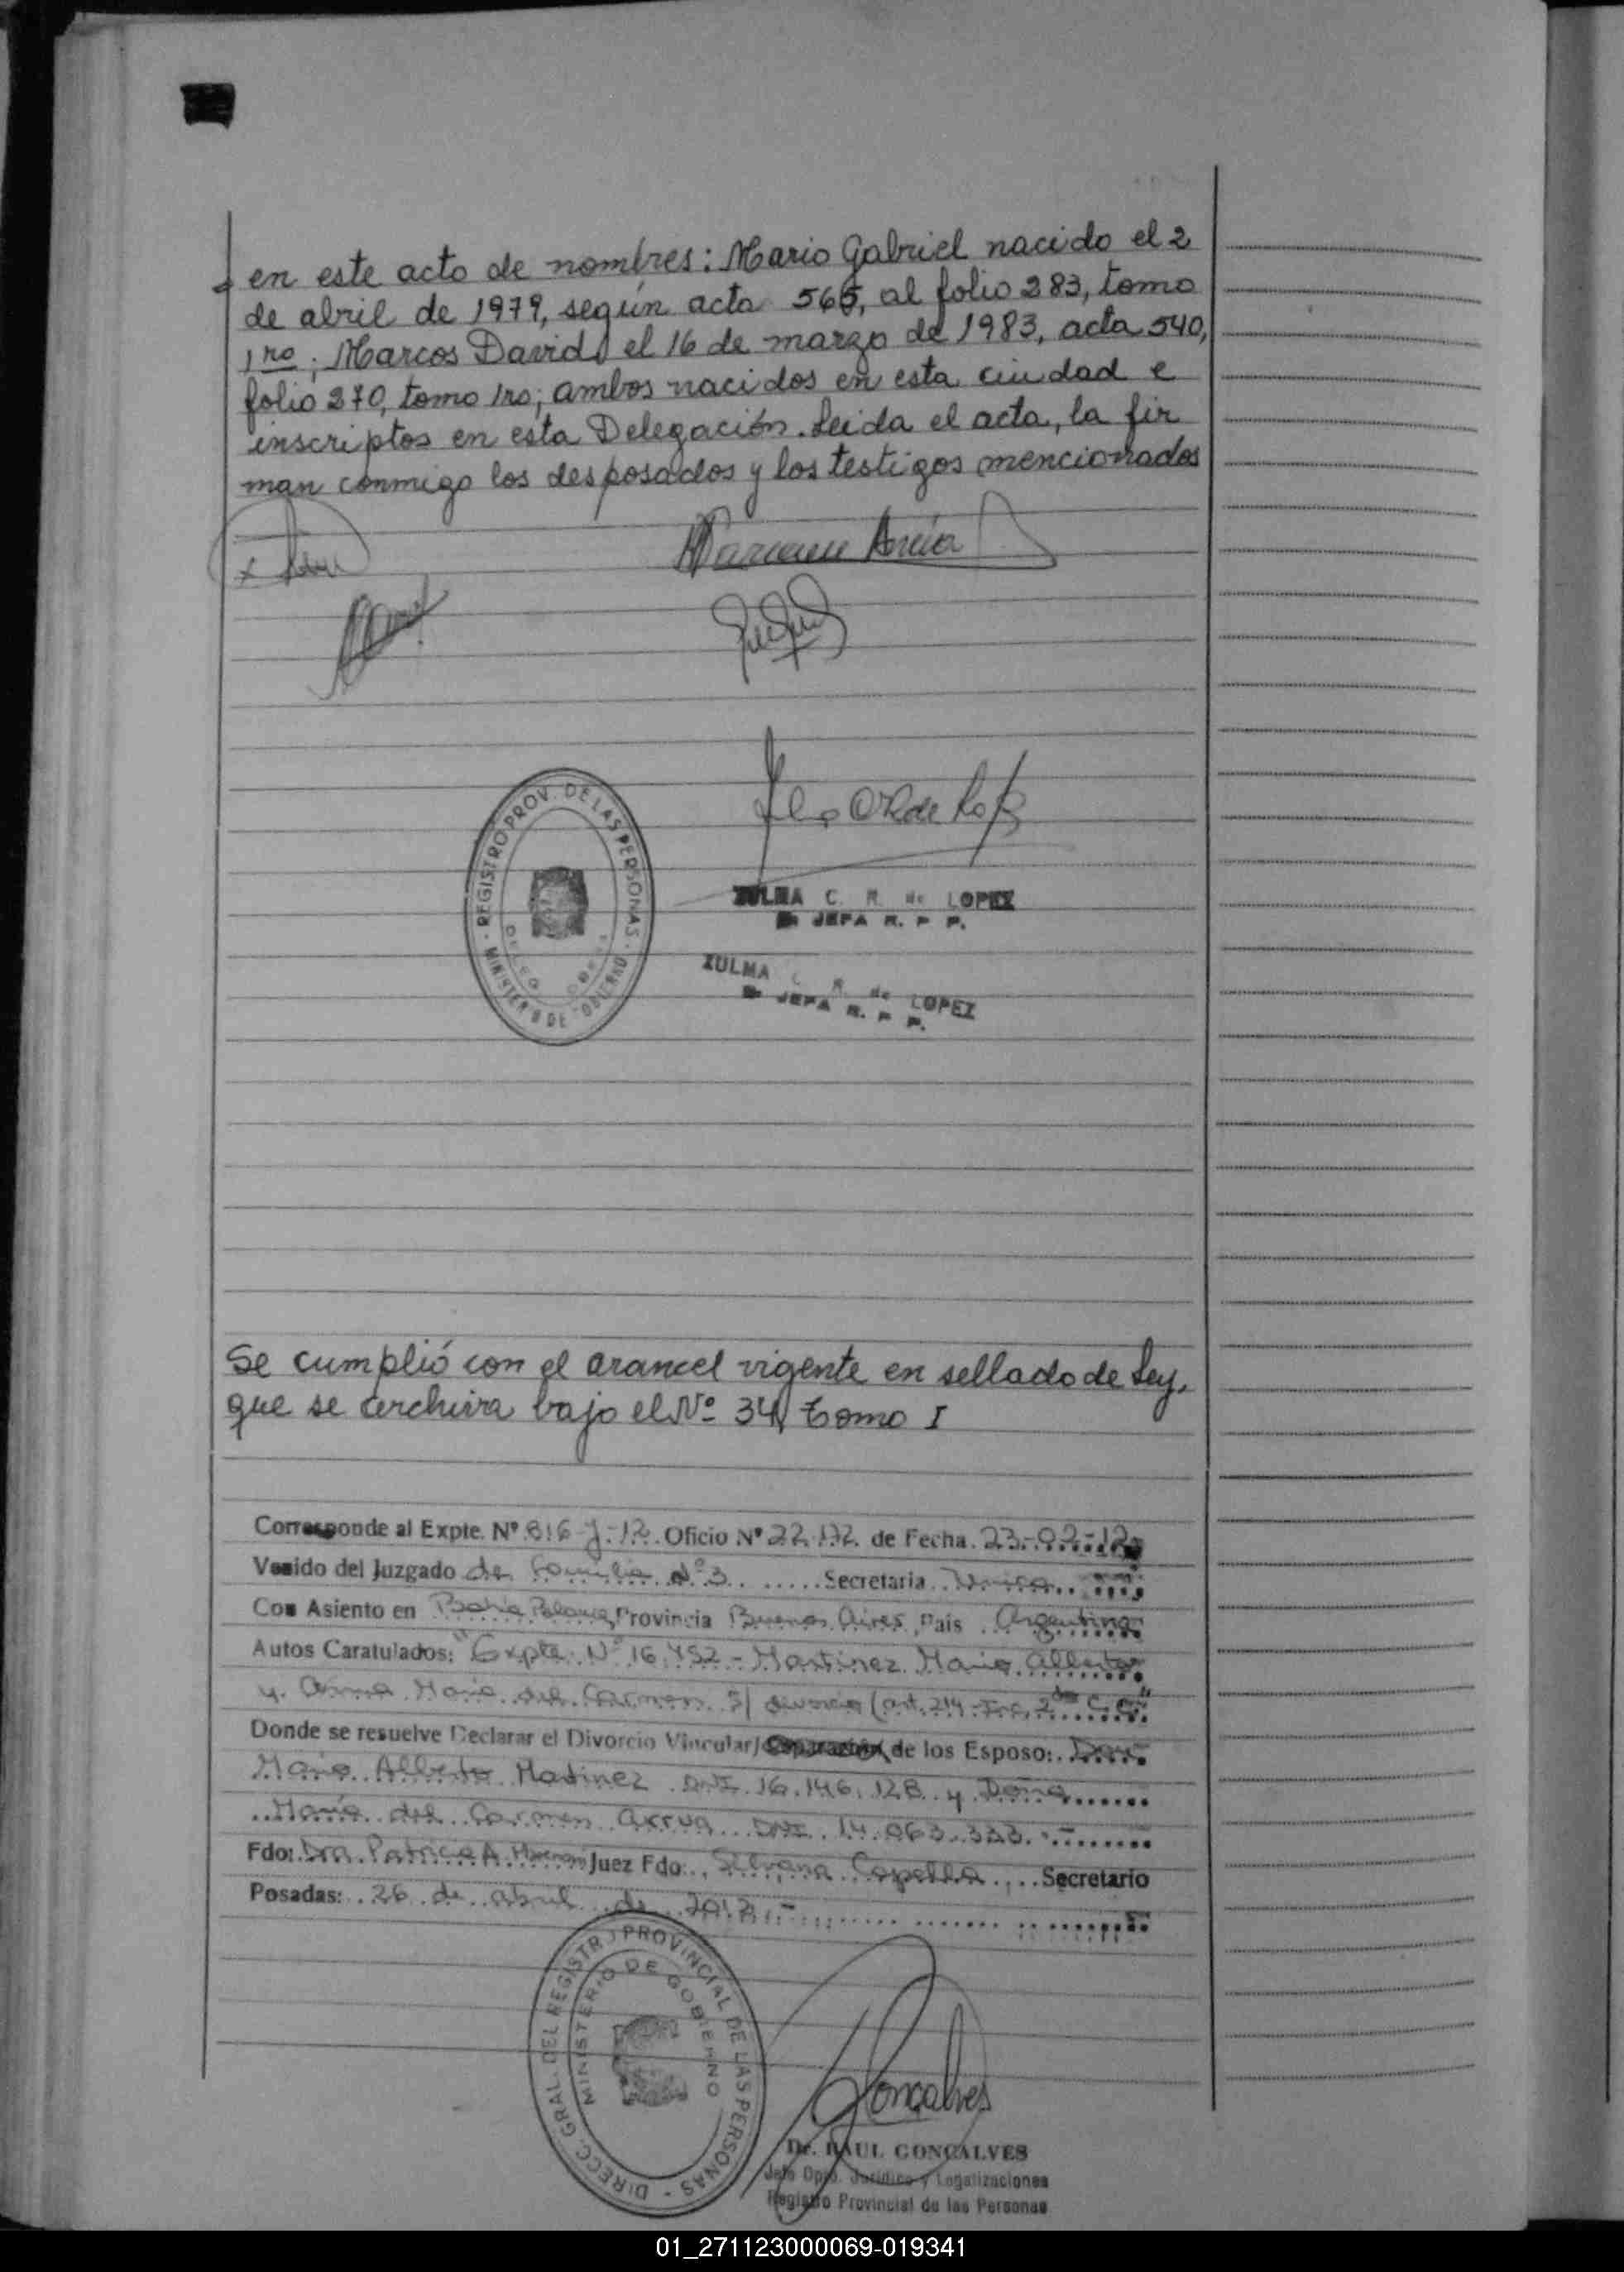 en este acto de nombres: Mario Gabriel nacido el 2
de abril de 1979, según acta 565, al folio 283, tomo
1ro; Marcos David el 16 de marzo de 1983, acta 540,
folio 270, tomo 1ro; ambos nacidos en esta ciudad e
inscriptos en esta Delegación. Leida el acta, la fir
man conmigo los desposados y los testigos mencionados
REGISTRO PROV. DE LAS PERSONAS
MINISTERIO DE GOBIERNO
ZULMA C. R. de LOPEZ
JEFA R. P. P.
ZULMA C. R. de LOPEZ
JEFA R. P. P.
Se cumplió con el arancel vigente en sellado de Ley,
que se archiva bajo el Nº 34, Tomo I
Corresponde al Expte. Nº 816-J-12 Oficio Nº 22.172 de Fecha 23-02-12
Venido del Juzgado de Familia Nº 3 Secretaria Unica
Con Asiento en Bahia Blanca Provincia Buenos Aires Pais Argentina
Autos Caratulados: "Expte. Nº 16.452 - Martinez Mario Alberto
y Arrua María del Carmen S/ divorcio (art. 214 Inc. 2do C.C."
Donde se resuelve Declarar el Divorcio Vincular/ de los Esposo: Don
Mario Alberto Martinez DNI 16.146.128 y Doña
María del Carmen Arrua DNI 14.063.333.-
Fdo: Dra. Patricia A. Juez Fdo: Silvana Copella Secretario
Posadas: 26 de abril de 2012.-
DIRECC. GRAL. DEL REGISTRO PROVINCIAL DE LAS PERSONAS
MINISTERIO DE GOBIERNO
Goncalves
Dr. RAUL GONCALVES
Jefe Dpto. Juridico y Legalizaciones
Registro Provincial de las Personas
01_271123000069-019341